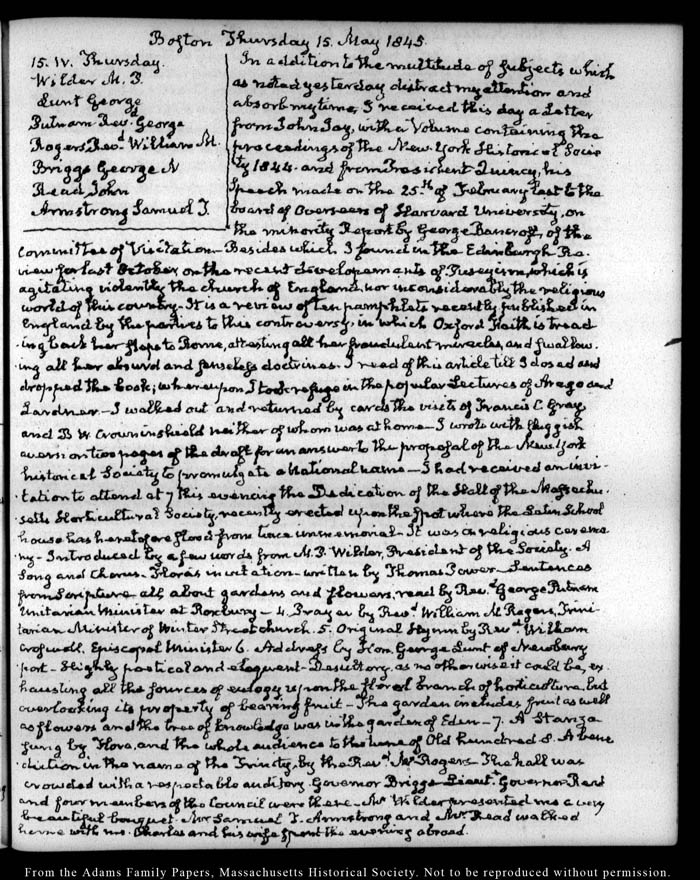 Boston Thursday 15. May 1845.
15. IV. Thursday.
Wilder M. P.
Lunt George
Putnam Revd. George
Rogers Revd. William M.
Briggs George N
Read John
Armstrong Samuel T.
In addition to the multitude of subjects which
as noted yesterday distract my attention and
absorb my time, I received this day a Letter
from John Jay, with a Volume containing the
proceedings of the New-York Historical Socie
ty 1844. and from President Quincy, his
Speech made on the 25th. of February last to the
board of Overseers of Harvard University, on
the minority Report by George Bancroft, of the
Committee of Visitation— Besides which, I found in the Edinburgh Re-
view for last October, on the recent developements of Puseyism, which is
agitating violently the church of England, nor inconsiderably the religious
world of this country— It is a review of ten pamphlets recently published in
England by the parties to this controversy; in which Oxford Faith is tread
ing back her steps to Rome, attesting all her fraudulent miracles, and swallow-
ing all her absurd and senseless doctrines. I read of this article till I dosed and
dropped the book; whereupon I took refuge in the popular Lectures of Arago and
Lardner.— I walked out and returned by cards the visits of Francis C. Gray
and B W. Crowninshield neither of whom was at home— I wrote with sluggish
aversion two pages of the draft for an answer to the proposal of the New-York
historical Society to promulgate a National name— I had received an invi-
tation to attend at 7 this evening the Dedication of the Hall of the Massachu-
setts Horticultural Society, recently erected upon the spot where the Latin School
house has heretofore stood from time immemorial— It was a religious ceremo
ny— Introduced by a few words from M. P. Wilder, President of the Society. A
Song and Chorus. Flora's invitation— written by Thomas Power— Sentences
from Scripture all about gardens and flowers, read by Revd. George Putnam
Unitarian Minister at Roxbury— 4. Prayer by Revd. William M Rogers, Trini-
tarian Minister of Winter Street church. 5. Original Hymn by Revd. William
Croswell, Episcopal Minister 6. Address by Hon. George Lunt of Newbury
port— Highly poetical and eloquent— Desultory, as no otherwise it could be, ex
hausting all the sources of eulogy upon the floral branch of horticulture, but
overlooking its property of bearing fruit— The garden includes fruit as well
as flowers and the tree of knowledge was in the garden of Eden— 7. A Stanza
sung by Flora, and the whole audience to the tune of Old hundred 8. A bene
diction in the name of the Trinity, by the Revd. Mr. Rogers The hall was
crowded with a respectable auditory Governor Briggs Lieutt. Governor Read
and four members of the Council were there— Mr. Wilder presented me a very
beautiful bouquet. Mr Samuel T. Armstrong and Mr. Read walked
home with me. Charles and his wife spent the evening abroad.
From the Adams Family Papers, Massachusetts Historical Society. Not to be reproduced without permission.